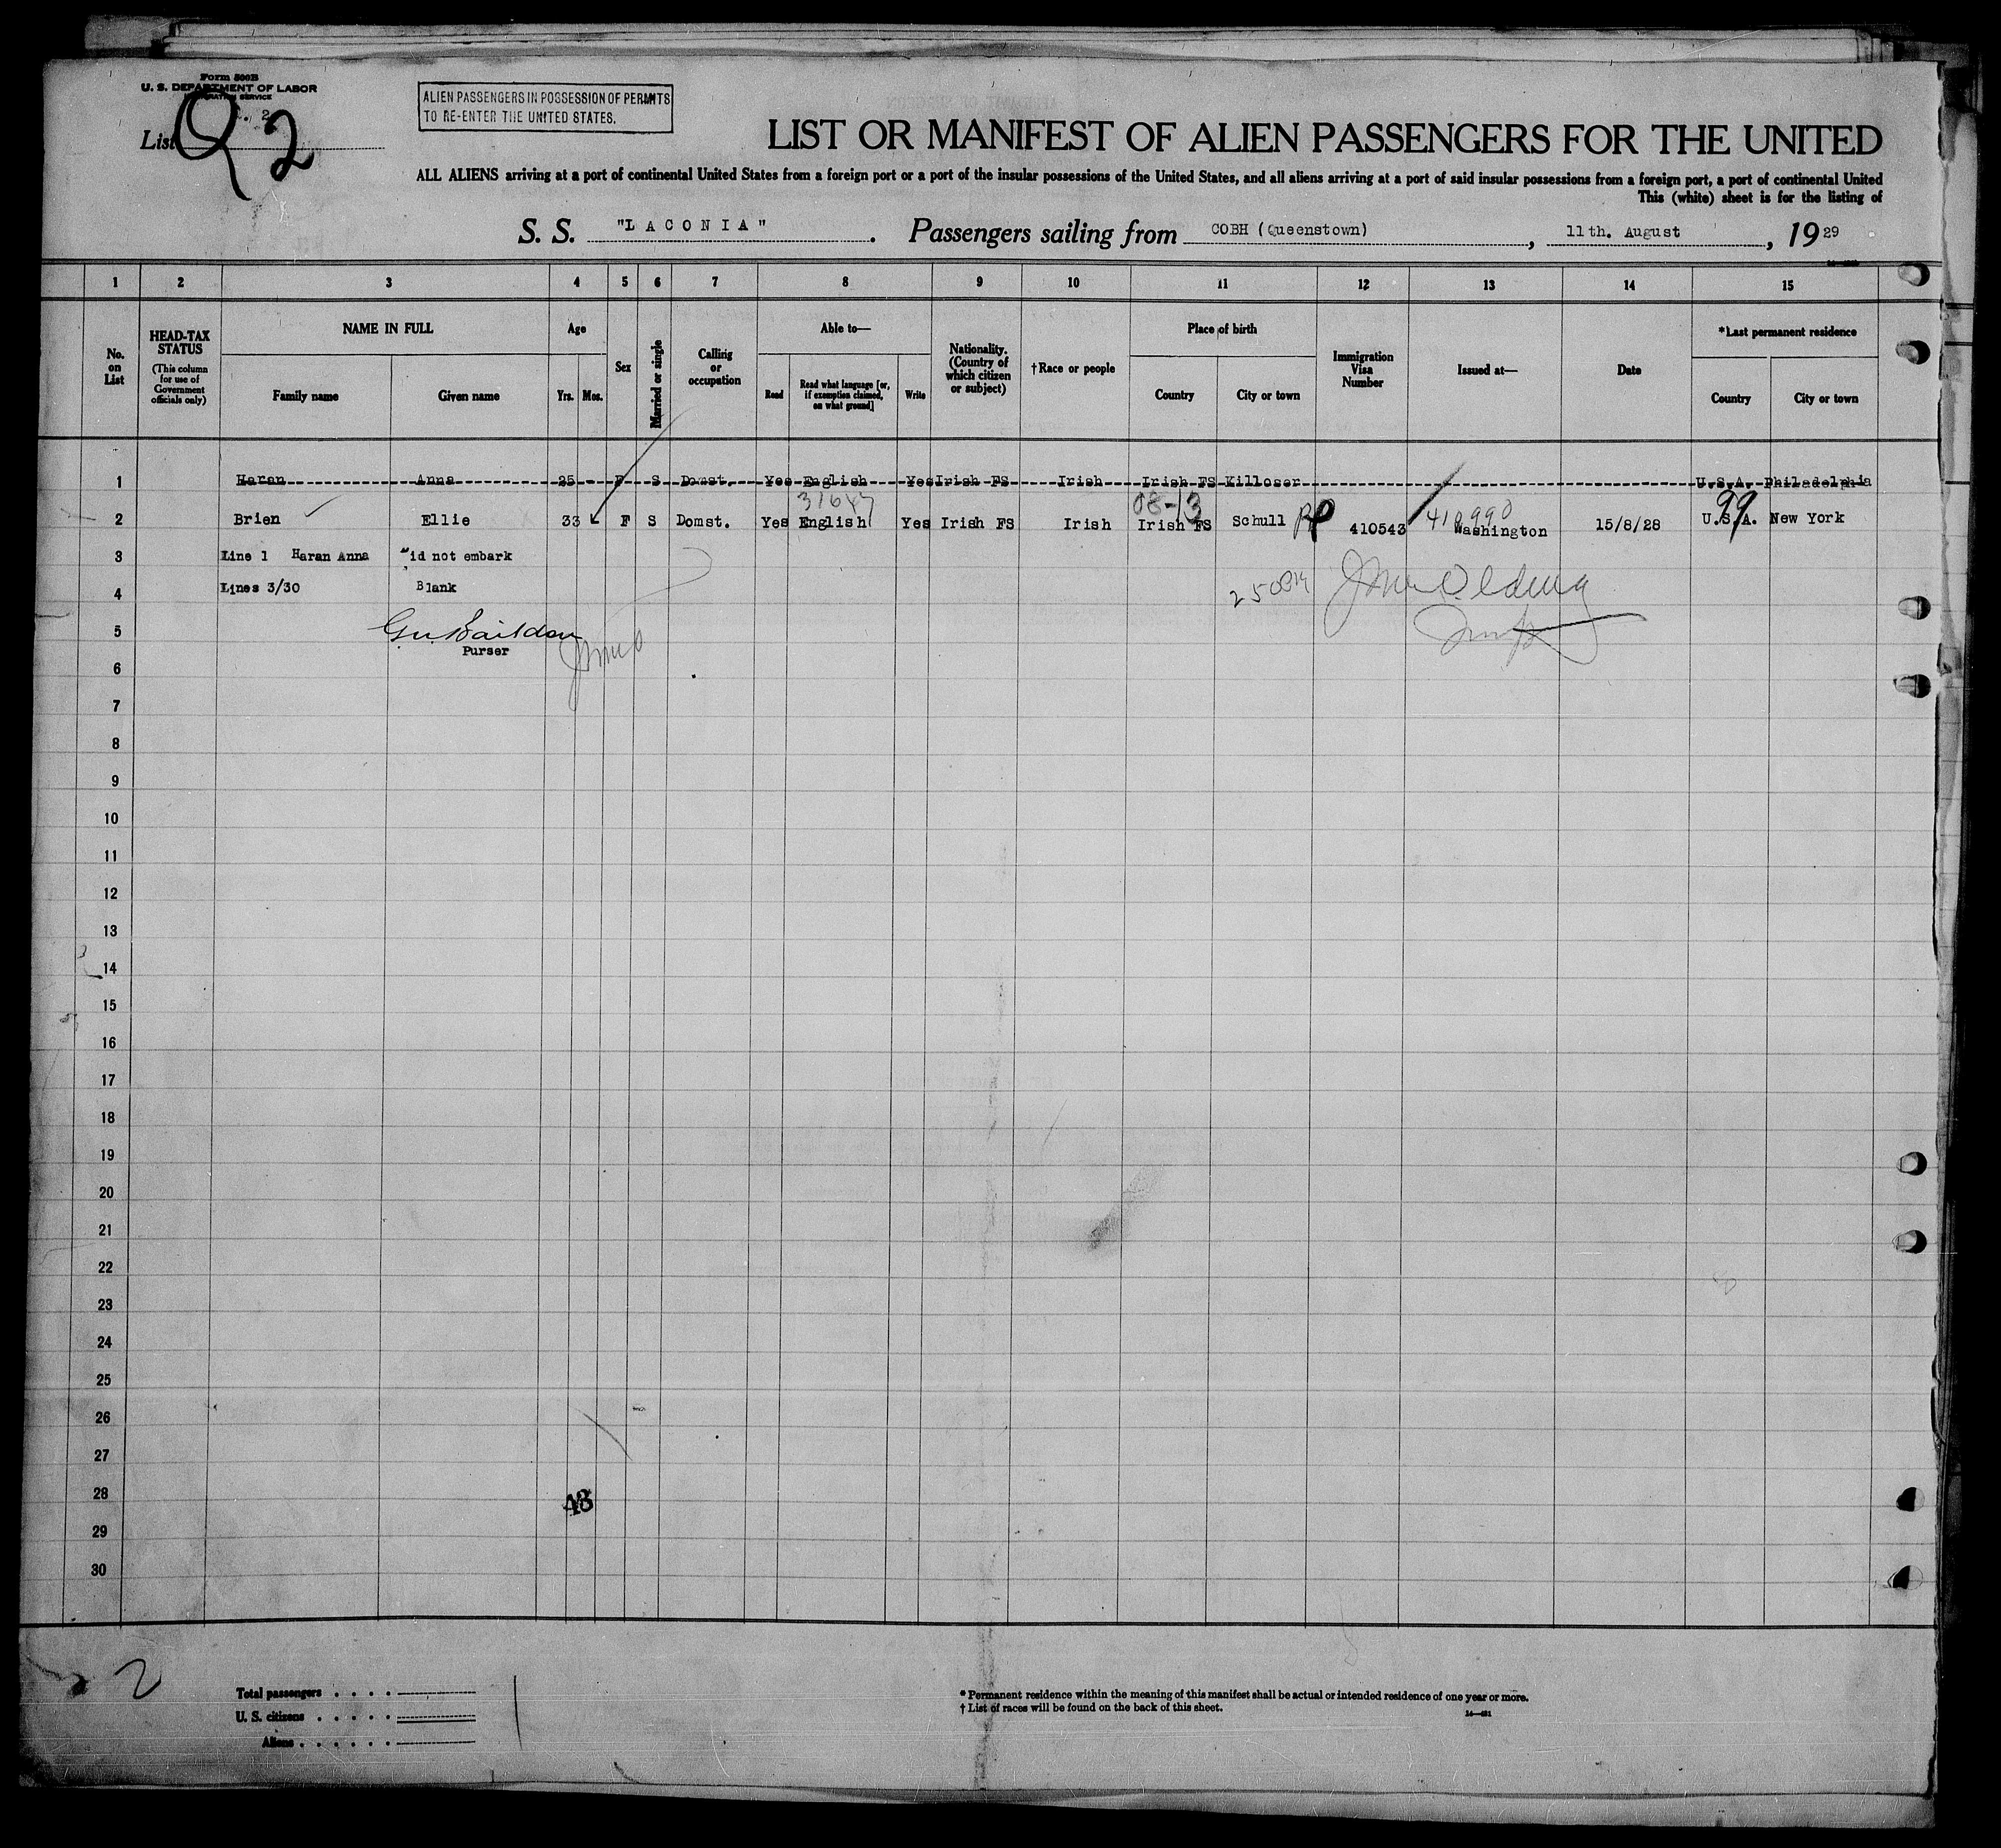 Form 500B
U. S. DEPARTMENT OF LABOR
IMMIGRATION SERVICE
List 2
2
ALIEN PASSENGERS IN POSSESSION OF PERMITS
TO RE-ENTER THE UNITED STATES.
LIST OR MANIFEST OF ALIEN PASSENGERS FOR THE UNITED
ALL ALIENS arriving at a port of continental United States from a foreign port or a port of the insular possessions of the United States, and all aliens arriving at a port of said insular possessions from a foreign port, a port of continental United
This (white) sheet is for the listing of
S. S. "LACONIA". Passengers sailing from COBH (Queenstown), 11th. August, 1929
1 2 3 4 5 6 7 8 9 10 11 12 13 14 15
No. on List
HEAD-TAX STATUS
(This column for use of Government officials only)
NAME IN FULL
Family name Given name
Age
Yrs. Mos.
Sex
Married or single
Calling or occupation
Able to—
Read Read what language [or, if exemption claimed, on what ground] Write
Nationality. (Country of which citizen or subject)
†Race or people
Place of birth
Country City or town
Immigration Visa Number
Issued at—
Date
*Last permanent residence
Country City or town
1 Haran Anna 25 - F S Domst. Yes English Yes Irish FS Irish Irish FS Killoser U.S.A. Philadelphia
31647 08-13 99
2 Brien Ellie 33 F S Domst. Yes English Yes Irish FS Irish Irish FS Schull RP 410543 410990 Washington 15/8/28 U.S.A. New York
3 Line 1 Haran Anna did not embark
4 Lines 3/30 Blank
5
Purser
6
7
8
9
10
11
12
13
14
15
16
17
18
19
20
21
22
23
24
25
26
27
28
48
29
30
2
Total passengers . . . .
U. S. citizens . . . . .
Aliens . . . . . .
* Permanent residence within the meaning of this manifest shall be actual or intended residence of one year or more.
† List of races will be found on the back of this sheet.